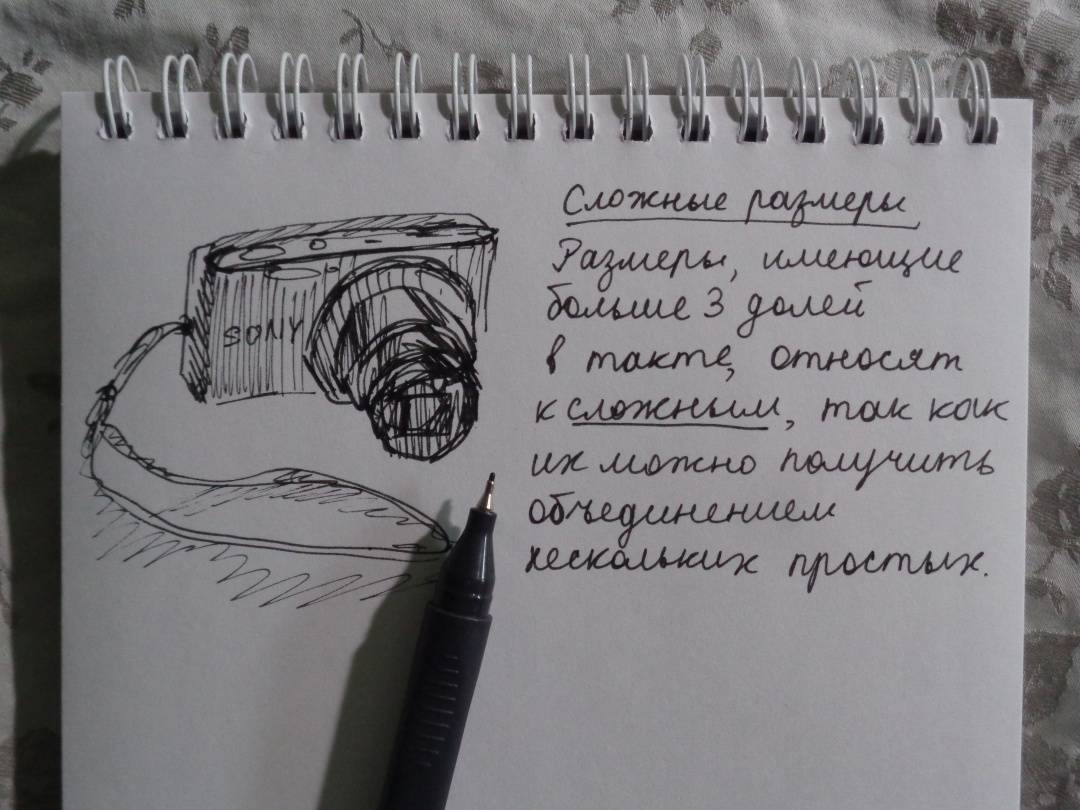 SONY
Сложные размеры
Размеры, имеющие
больше 3 долей
в такте, относят
к сложным, так как
их можно получить
объединением
нескольких простых.